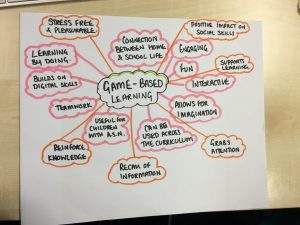 STRESS FREE
& PLEASURABLE
CONNECTION
BETWEEN HOME
& SCHOOL LIFE
POSITIVE IMPACT ON
SOCIAL SKILLS
LEARNING
BY DOING.
ENGAGING
FUN
SUPPORTS
LEARNING
BUILDS ON
DIGITAL SKILLS
GAME-BASED
LEARNING
INTERACTIVE
TEAMWORK
ALLOWS FOR
IMAGINATION
USEFUL FOR
CHILDREN
WITH A.S.N.
CAN BE
USED ACROSS
THE CURRICULUM
REINFORCE
KNOWLEDGE
GRABS
ATTENTION
RECALL OF
INFORMATION